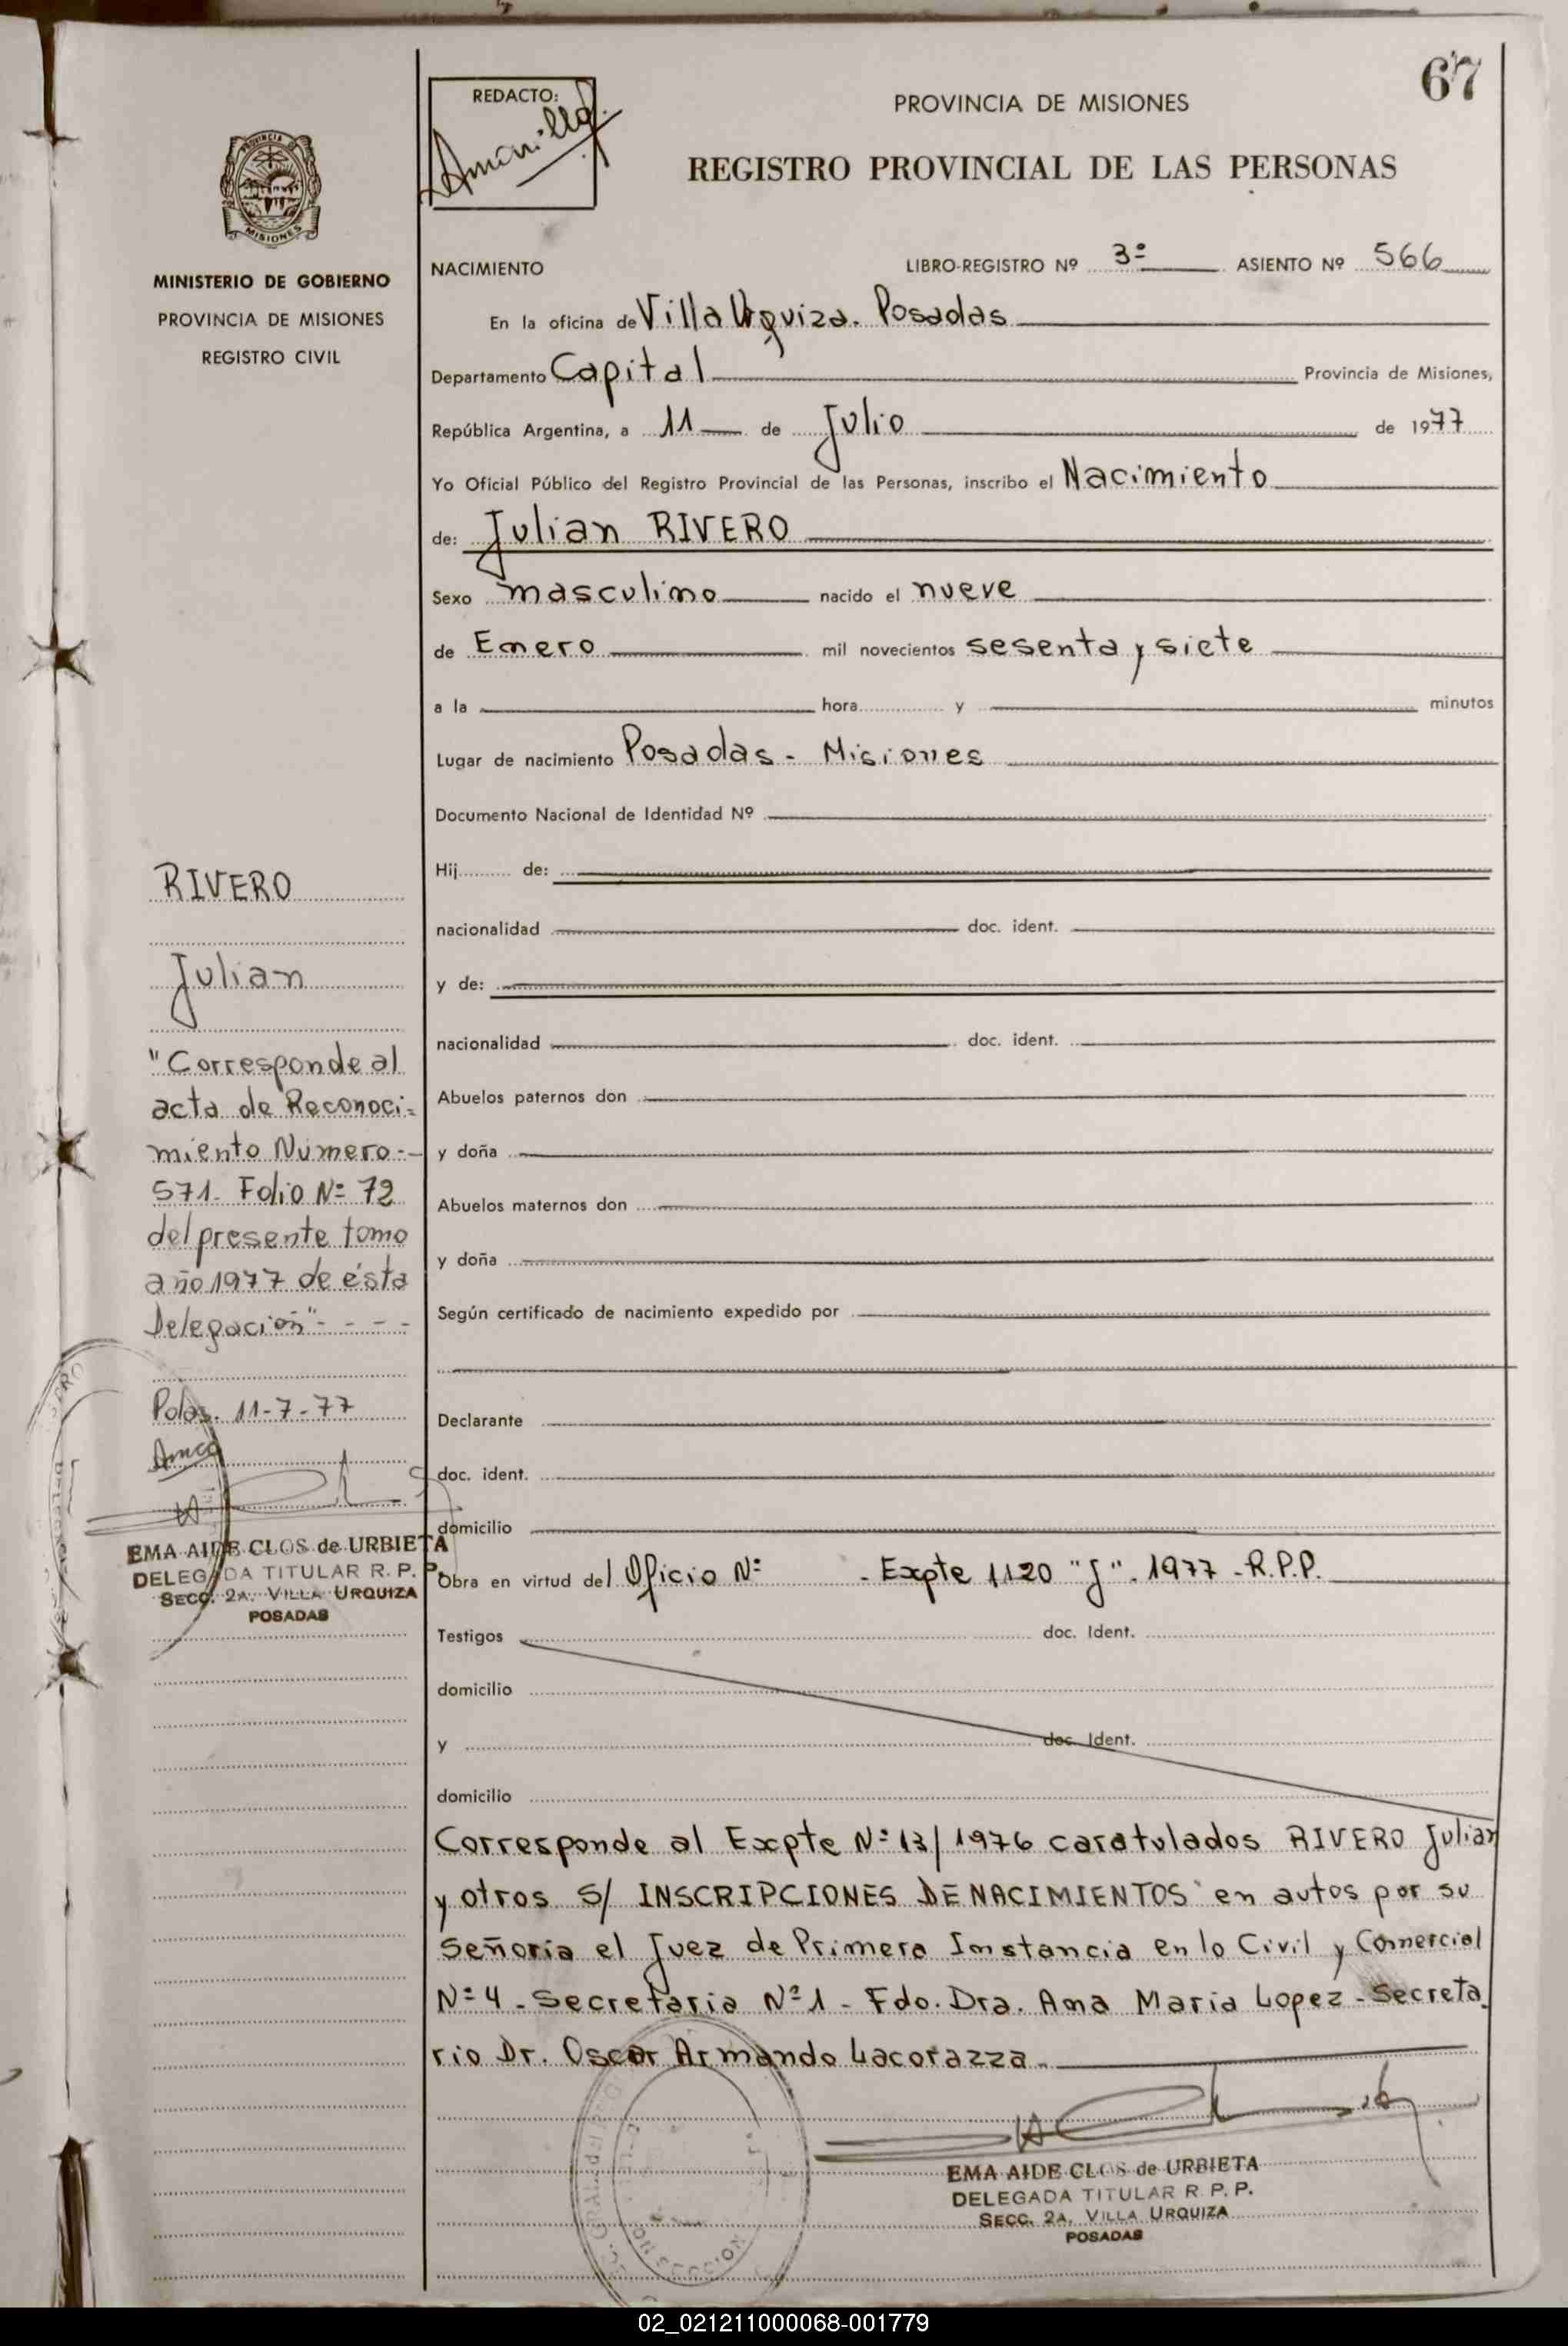 67
REDACTO:
PROVINCIA DE MISIONES
REGISTRO PROVINCIAL DE LAS PERSONAS
PROVINCIA DE
MISIONES
MINISTERIO DE GOBIERNO
PROVINCIA DE MISIONES
REGISTRO CIVIL
NACIMIENTO LIBRO-REGISTRO Nº 3º ASIENTO Nº 566
En la oficina de Villa Urquiza. Posadas
Departamento Capital Provincia de Misiones,
República Argentina, a 11 de Julio de 1977
Yo Oficial Público del Registro Provincial de las Personas, inscribo el Nacimiento
de: Julian RIVERO
Sexo masculino nacido el nueve
de Enero mil novecientos sesenta y siete
a la hora y minutos
Lugar de nacimiento Posadas - Misiones
Documento Nacional de Identidad Nº
Hij de:
nacionalidad doc. ident.
y de:
nacionalidad doc. ident.
Abuelos paternos don
y doña
Abuelos maternos don
y doña
Según certificado de nacimiento expedido por
Declarante
doc. ident.
domicilio
Obra en virtud del Oficio Nº - Expte 1120 "J". 1977 - R.P.P.
Testigos doc. Ident.
domicilio
y doc. Ident.
domicilio
Corresponde al Expte Nº 13/1976 caratulados RIVERO Julian
y otros S/ INSCRIPCIONES DE NACIMIENTOS" en autos por su
Señoria el Juez de Primera Instancia en lo Civil y Comercial
Nº 4 - Secretaria Nº 1 - Fdo. Dra. Ana Maria Lopez - Secreta
rio Dr. Oscar Armando Lacorazza.
EMA AIDE CLOS de URBIETA
DELEGADA TITULAR R. P. P.
SECC. 2A. VILLA URQUIZA
POSADAS
RIVERO
Julian
"Corresponde al
acta de Reconoci-
miento Numero -
571. Folio Nº 72
del presente tomo
año 1977 de ésta
Delegación" - - - -
Pdas. 11-7-77
EMA AIDE CLOS de URBIETA
DELEGADA TITULAR R. P. P.
SECC. 2A. VILLA URQUIZA
POSADAS
02_021211000068-001779